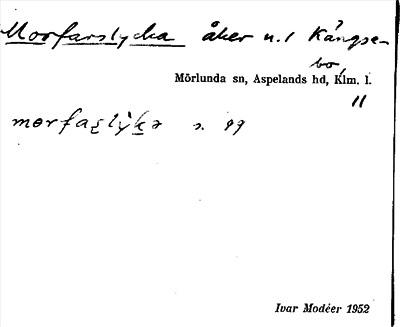 Morfarslycka åker u. / Kångse-
bo,
Mörlunda sn, Aspelands hd, Klm. l.
11
morfaṣlỳka s. 99
Ivar Modéer 1952